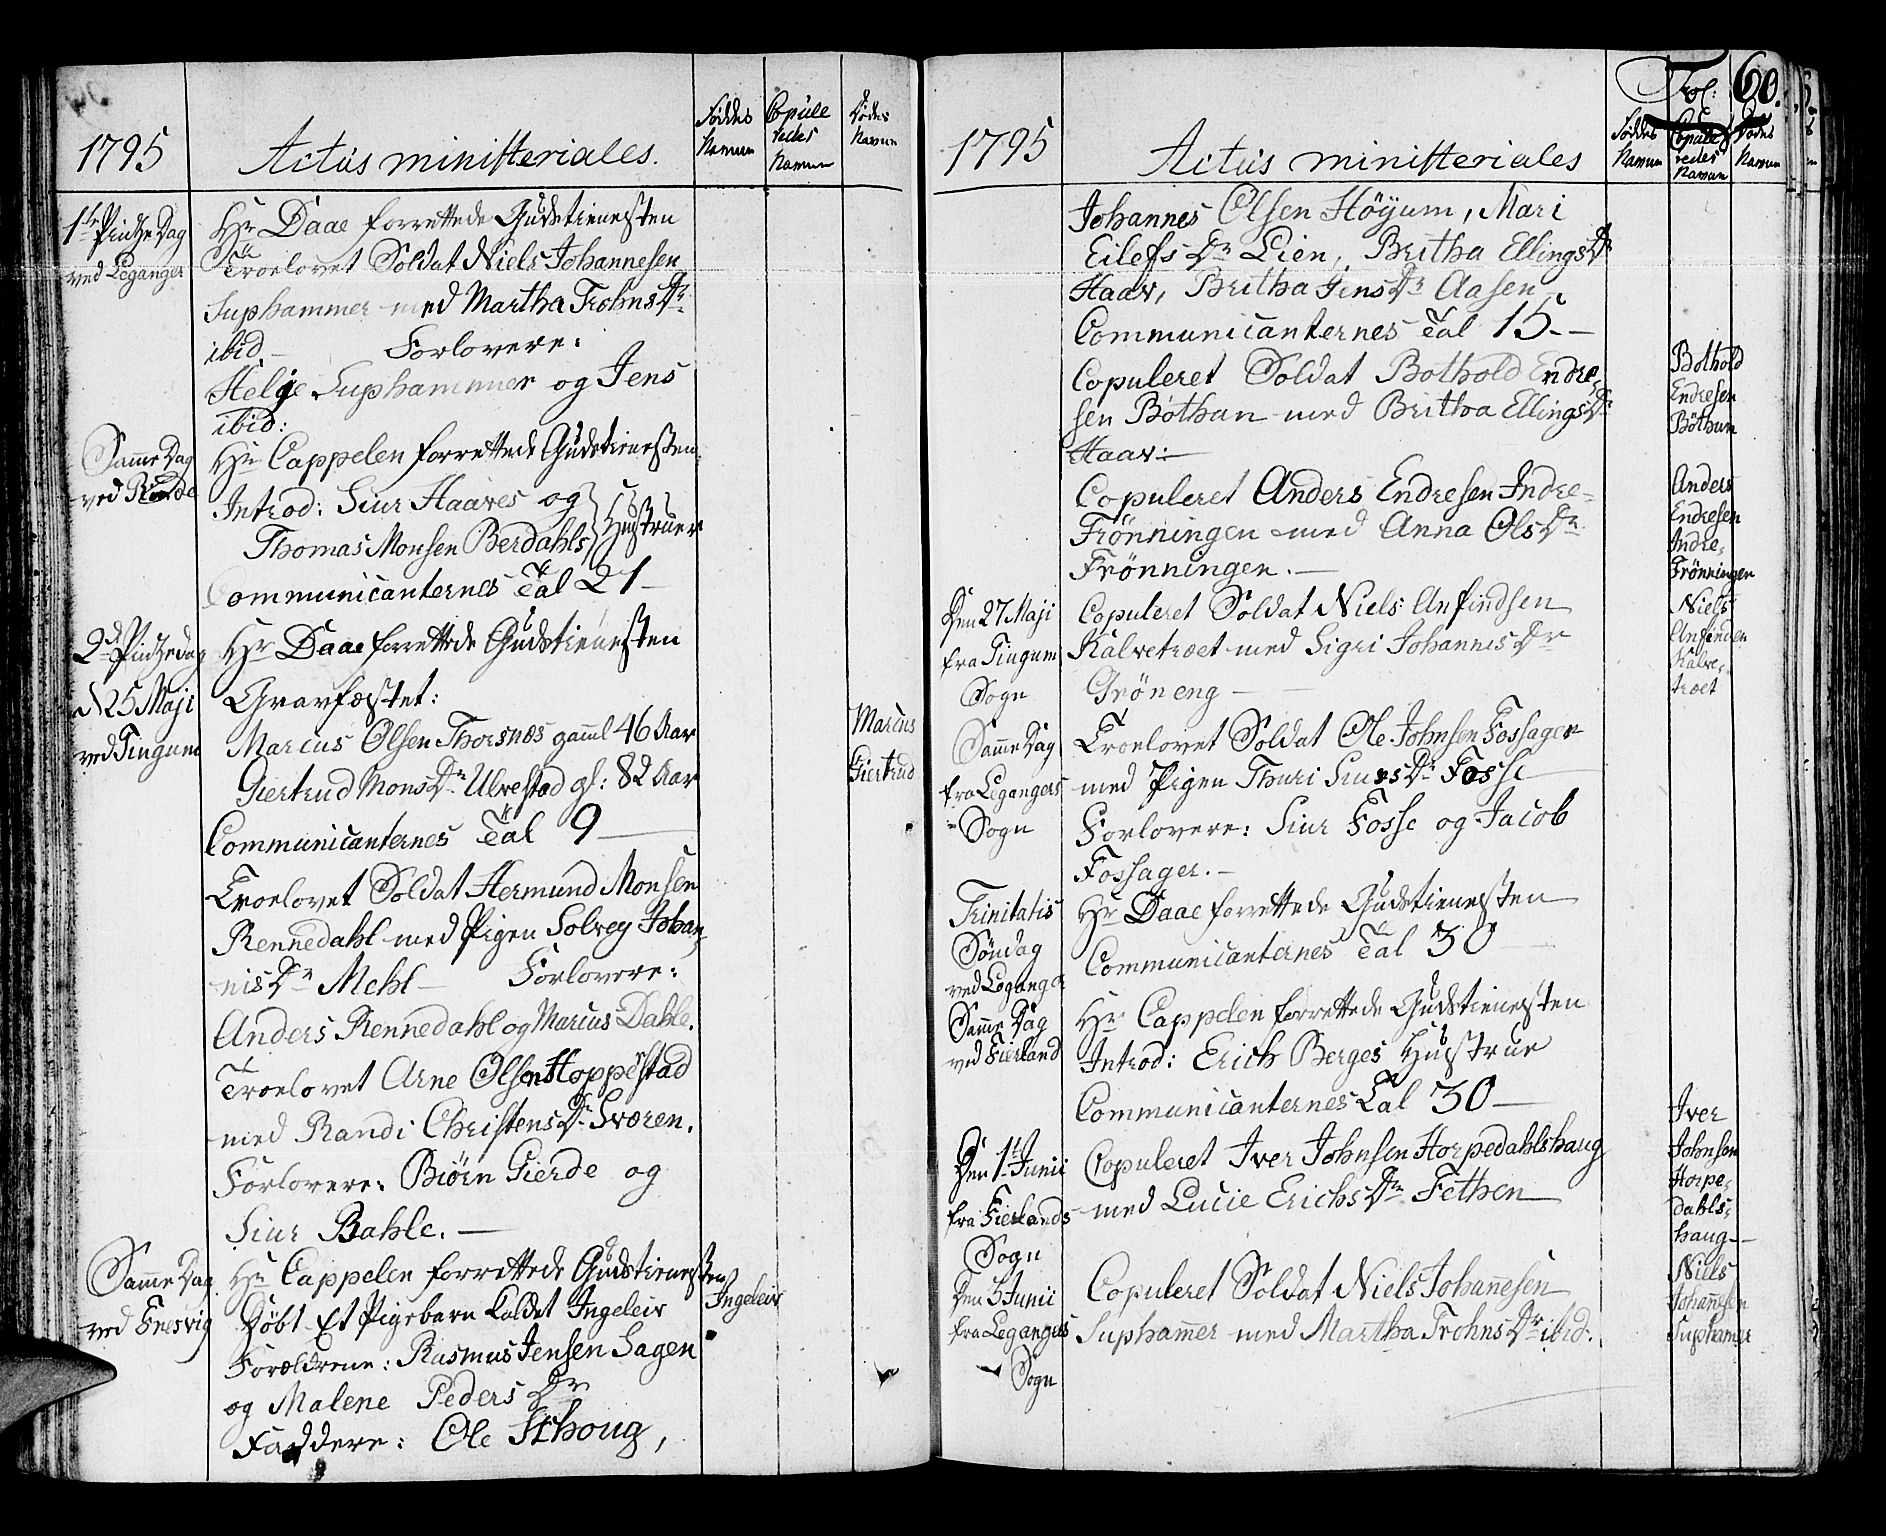 1795
Actus ministeriales.
Fødde
Navne
Copule
redes
Navne
Dødes
Navne
1ste Pintze Dag
ved Leganger
Hr Daae forrettede Gudstienesten
Troelovet Soldat Niels Johannesen
Suphammer med Martha Trohns Dr
ibid. Forlovere:
Helje Suphammer og Jens
ibid:
Samme Dag
ved Rinde
Hr Cappelen forrettede Gudstienesten
Introd: Siur Haaves og
Thomas Monsen Berdahls Hustruer
Communicanternes Tal 21
2d Pintzedag
d 25 Maji
ved Tingum
Hr Daae forrettede Gudstienesten
Gravfæstet:
Marcus Olsen Thorsnæs gaml 46 Aar
Giertrud Mons Dr Ulvestad gl: 82 Aar
Marcus
Giertrud
Communicanternes Tal 9
Troelovet Soldat Hermund Monsen
Rennedahl med Pigen Solvey Johan-
nis Dr Mehl Forlovere:
Anders Rennedahl og Marcus Dahle.
Troelovet Arne Olsen Hoppestad
med Randi Christens Dr Sværen.
Forlovere: Biørn Gierde og
Siur Bahle.
Samme Dag
ved Fresvig
Hr Cappelen forrettede Gudstienesten
Døbt Et Pigebarn kaldet Ingeleiv
Ingeleiv
Forældrene: Rasmus Jensen Sagen
og Malene Peders Dr
Faddere: Ole Schoug,
Fol: 60.
1795
Actus ministeriales
Fødde
Navne
Copule
redes
Navne
Dødes
Navne
Johannes Olsen Høyum, Mari
Eilefs Dr Lien, Britha Ellings Dr
Haav, Britha Jens Dr Aasen
Communicanternes Tal 15.
Copuleret Soldat Bothold Endre-
sen Bøthun med Britha Ellings Dr
Haav:
Bothold
Endresen
Bøthun
Copuleret Anders Endresen Indre-
Frønningen med Anna Ols Dr
Frønningen.
Anders
Endresen
Indre-
Frønningen
Den 27 Maji
fra Tingum
Sogn
Copuleret Soldat Niels Anfindsen
Kalvetræet med Sigri Johannis Dr
Grøneng
Niels
Anfindsen
Kalve-
træet
Samme Dag
fra Legangers
Sogn
Troelovet Soldat Ole Johnsen Fossager
med Pigen Thuri Siurs Dr Fosse
Forlovere: Siur Fosse og Jacob
Fossager.
Trinitatis
Søndag
ved Leganger
Hr Daae forrettede Gudstienesten
Communicanternes Tal 30
Samme Dag
ved Fierland
Hr Cappelen forrettede Gudstienesten
Introd: Erich Berges Hustrue
Communicanternes Tal 30
Den 1t Junii
fra Fierlands
Sogn
Copuleret Iver Johnsen Horpedahlshaug
med Lucie Erichs Dr Fethen
Iver
Johnsen
Horpe-
dahls-
haug
Den 5 Junii
fra Legangers
Sogn
Copuleret Soldat Niels Johanesen
Suphamer med Martha Trohns Dr ibid.
Niels
Johanesen
Suphamer